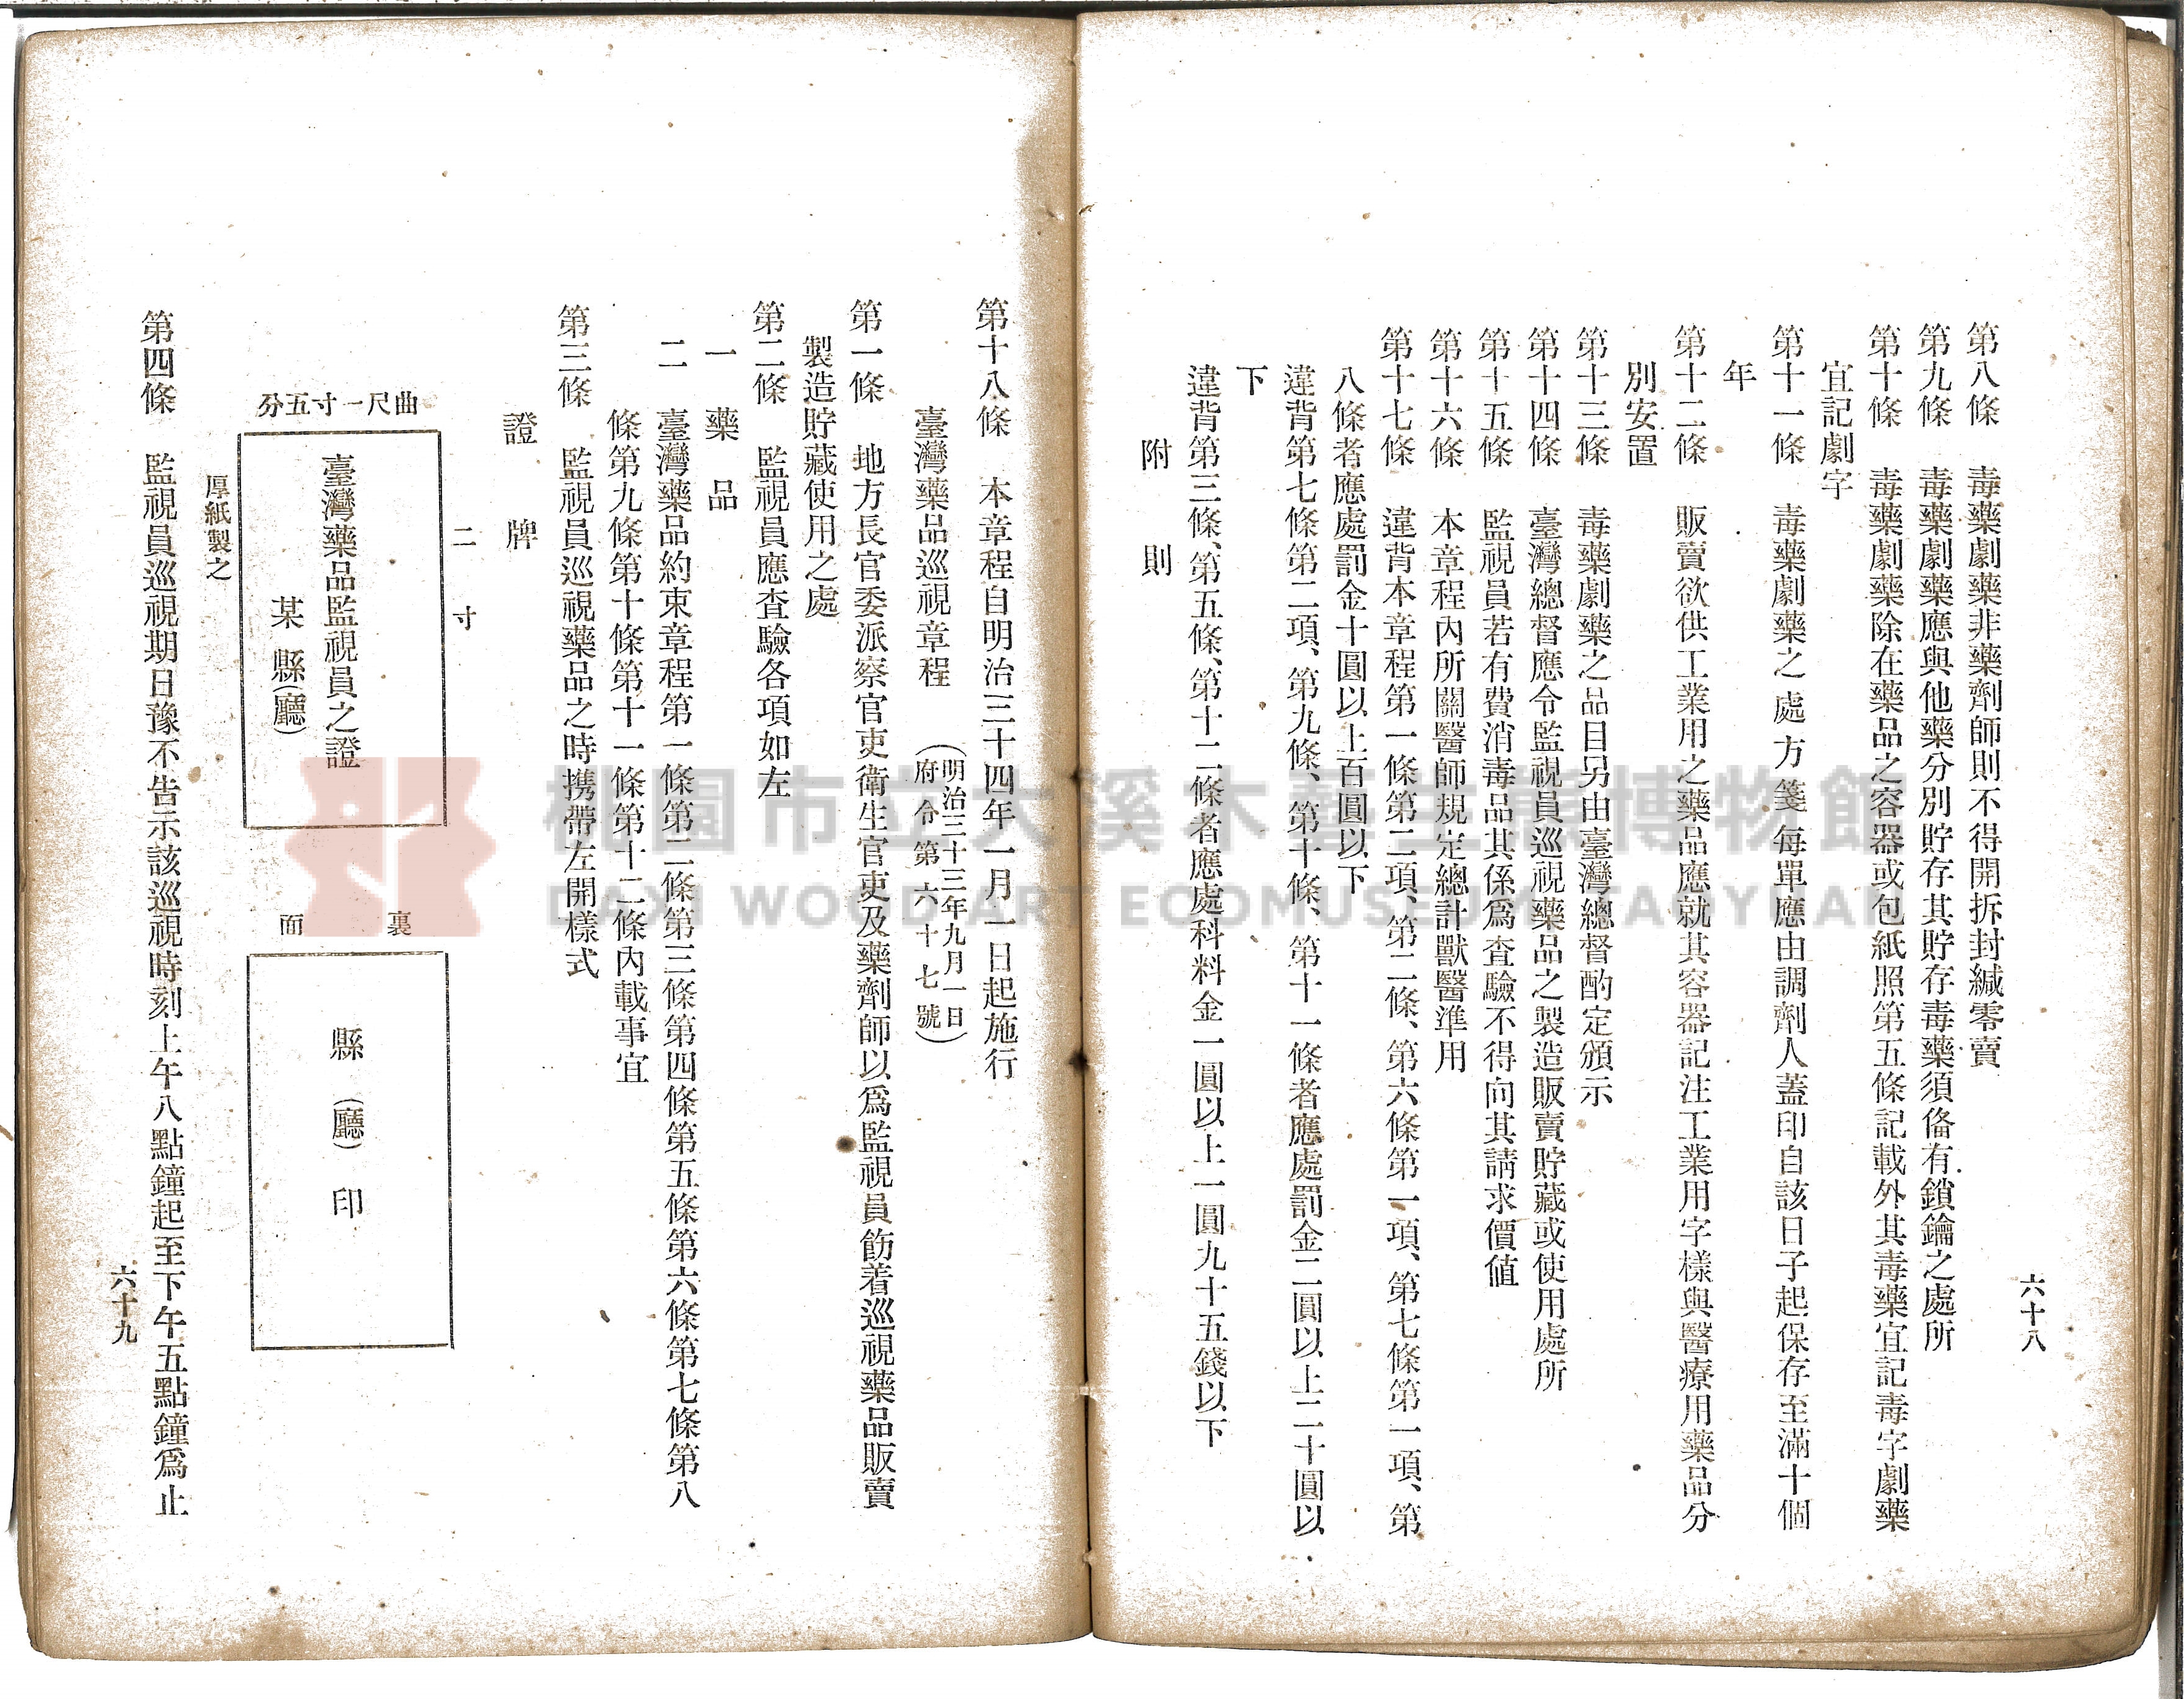 六十八
第八條　毒藥劇藥非藥劑師則不得開拆封緘零賣
第九條　毒藥劇藥應與他藥分別貯存其貯存毒藥須偹有鎖鑰之處所
第十條　毒藥劇藥除在藥品之容器或包紙照第五條記載外其毒藥宜記毒字劇藥
宜記劇字
第十一條　毒藥劇藥之處方箋每單應由調劑人蓋印自該日子起保存至滿十個
年
第十二條　販賣欲供工業用之藥品應就其容器記注工業用字樣與醫療用藥品分
別安置
第十三條　毒藥劇藥之品目另由臺灣總督酌定頒示
第十四條　臺灣總督應令監視員巡視藥品之製造販賣貯藏或使用處所
第十五條　監視員若有費消毒品其係爲査驗不得向其請求價値
第十六條　本章程內所關醫師規定總計獸醫準用
第十七條　違背本章程第一條第二項、第二條、第六條第一項、第七條第一項、第
八條者應處罰金十圓以上百圓以下
違背第七條第二項、第九條、第十條、第十一條者應處罰金二圓以上二十圓以
下
違背第三條、第五條、第十二條者應處科料金一圓以上一圓九十五錢以下
附則
第十八條　本章程自明治三十四年一月一日起施行
臺灣藥品巡視章程（明治三十三年九月一日
府令第六十七號）
第一條　地方長官委派察官吏衛生官吏及藥劑師以爲監視員飭着巡視藥品販賣
製造貯藏使用之處
第二條　監視員應査驗各項如左
一　藥品
二　臺灣藥品約束章程第一條第二條第三條第四條第五條第六條第七條第八
條第九條第十條第十一條第十二條內載事宜
第三條　監視員巡視藥品之時携帶左開樣式
證牌
二寸
曲尺一寸五分
臺灣藥品監視員之證
某縣(廳)
裏面
縣(廳)印
厚紙製之
第四條　監視員巡視期日豫不告示該巡視時刻上午八點鐘起至下午五點鐘爲止
六十九
桃園市立大溪木藝生態博物館
DAXI WOOD ART ECOMUSEUM, TAOYUAN